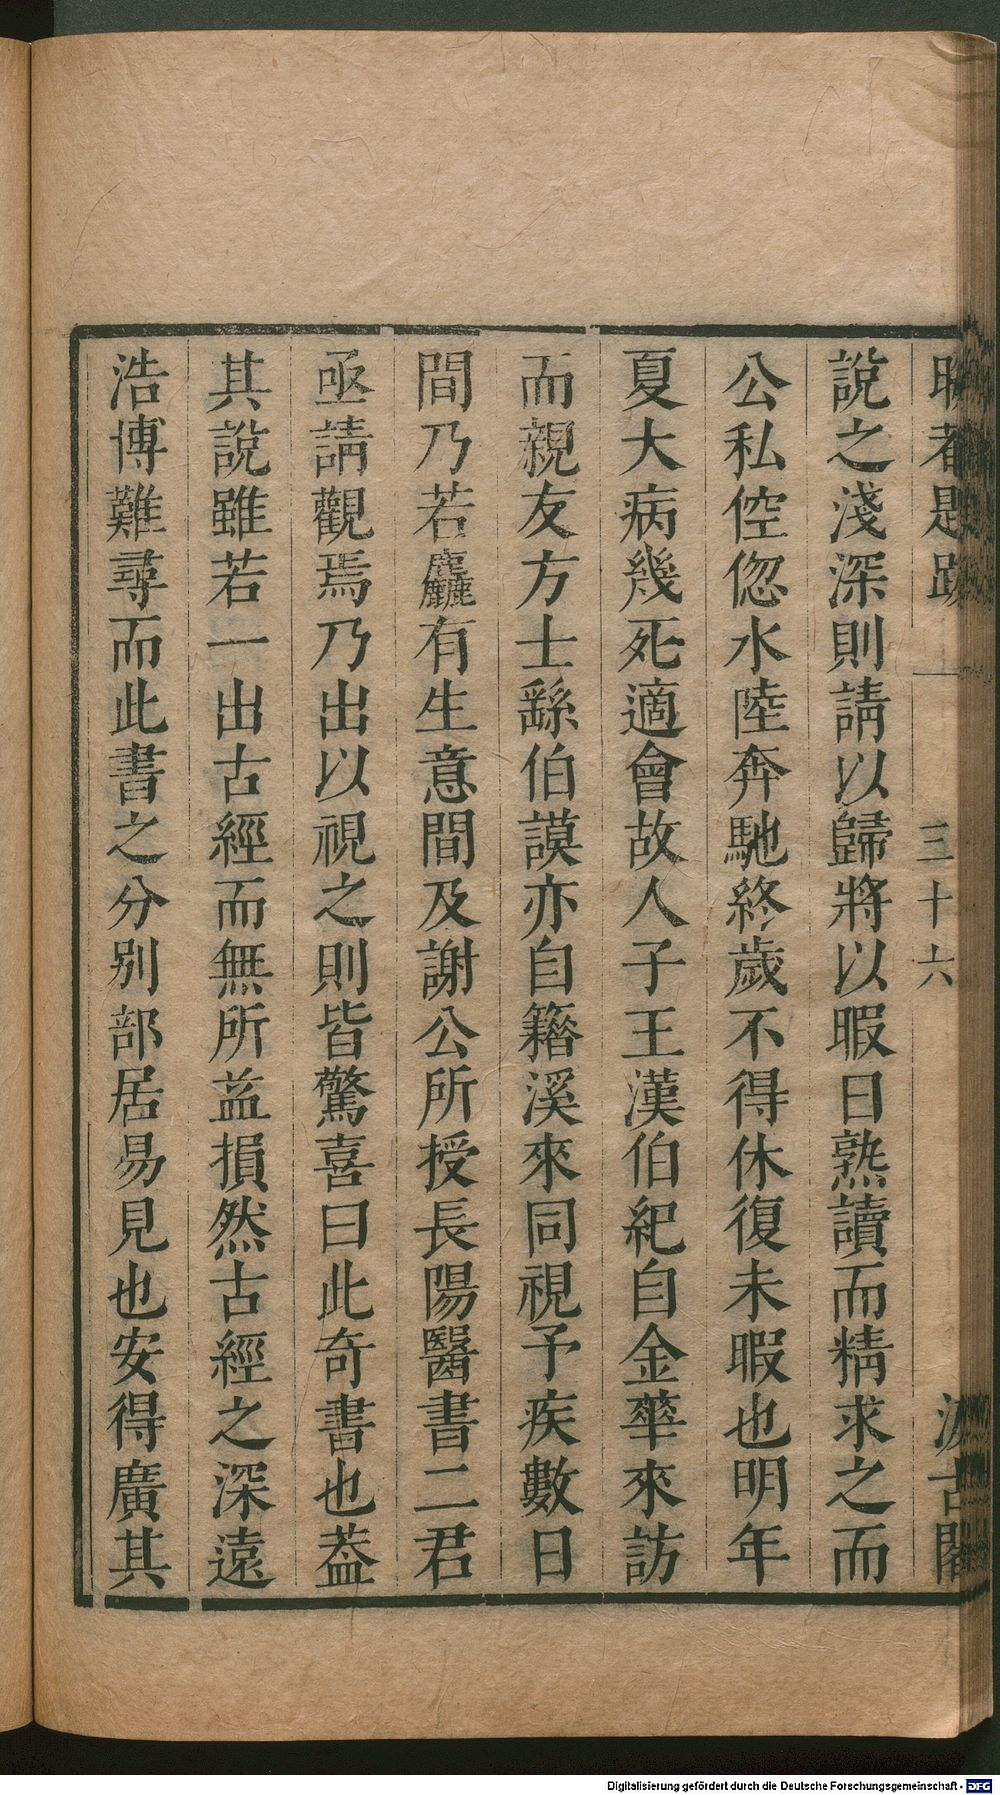 晦菴題跋 一 三十六 汲古閣
說之淺深則請以歸將以暇日熟讀而精求之而
公私倥傯水陸奔馳終歲不得休復未暇也明年
夏大病幾死適會故人子王漢伯紀自金華來訪
而親友方士繇伯謨亦自籍溪來同視予疾數日
間乃若麤有生意間及謝公所授長陽醫書二君
亟請觀焉乃出以視之則皆驚喜曰此奇書也葢
其說雖若一出古經而無所益損然古經之深遠
浩博難尋而此書之分別部居易見也安得廣其
Digitalisierung gefördert durch die Deutsche Forschungsgemeinschaft - DFG